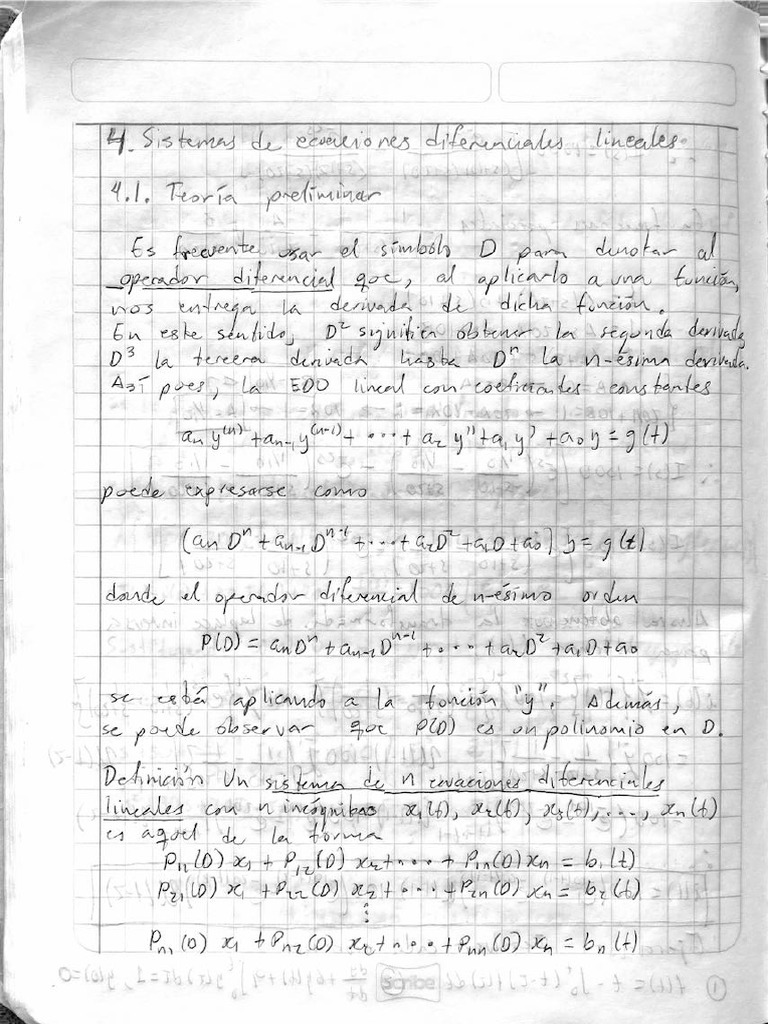 4. Sistemas de ecuaciones diferenciales lineales
4.1. Teoría preliminar
Es frecuente usar el símbolo D para denotar al
operador diferencial que, al aplicarlo a una función,
nos entrega la derivada de dicha función.
En este sentido, D² significa obtener la segunda derivada,
D³ la tercera derivada hasta Dⁿ la n-ésima derivada.
Así pues, la EDO lineal con coeficientes constantes
aₙ y⁽ⁿ⁾ + aₙ₋₁ y⁽ⁿ⁻¹⁾ + ··· + a₂ y'' + a₁ y' + a₀ y = g(t)
puede expresarse como
(aₙ Dⁿ + aₙ₋₁ Dⁿ⁻¹ + ··· + a₂D² + a₁D + a₀) y = g(t)
donde el operador diferencial de n-ésimo orden
P(D) = aₙDⁿ + aₙ₋₁Dⁿ⁻¹ + ··· + a₂D² + a₁D + a₀
se está aplicando a la función "y". Además,
se puede observar que P(D) es un polinomio en D.
Definición Un sistema de n ecuaciones diferenciales
lineales con n incógnitas x₁(t), x₂(t), x₃(t), ..., xₙ(t)
es aquel de la forma
P₁₁(D) x₁ + P₁₂(D) x₂ + ··· + P₁ₙ(D) xₙ = b₁(t)
P₂₁(D) x₁ + P₂₂(D) x₂ + ··· + P₂ₙ(D) xₙ = b₂(t)
⋮
Pₙ₁(D) x₁ + Pₙ₂(D) x₂ + ··· + Pₙₙ(D) xₙ = bₙ(t)
scribe